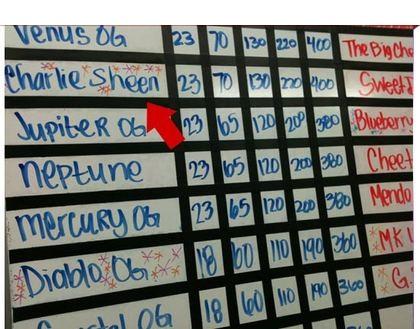 Venus OG 23 70 130 220 400 The Big
Charlie Sheen 23 70 130 220 400 Sweet
Jupiter OG 23 65 120 200 380 Blueberry
Neptune 23 65 120 200 380 Cheet
Mercury OG 23 65 120 200 380 Mendo
Diablo OG 18 60 110 190 360 MK
18 60 110 190 360 G.